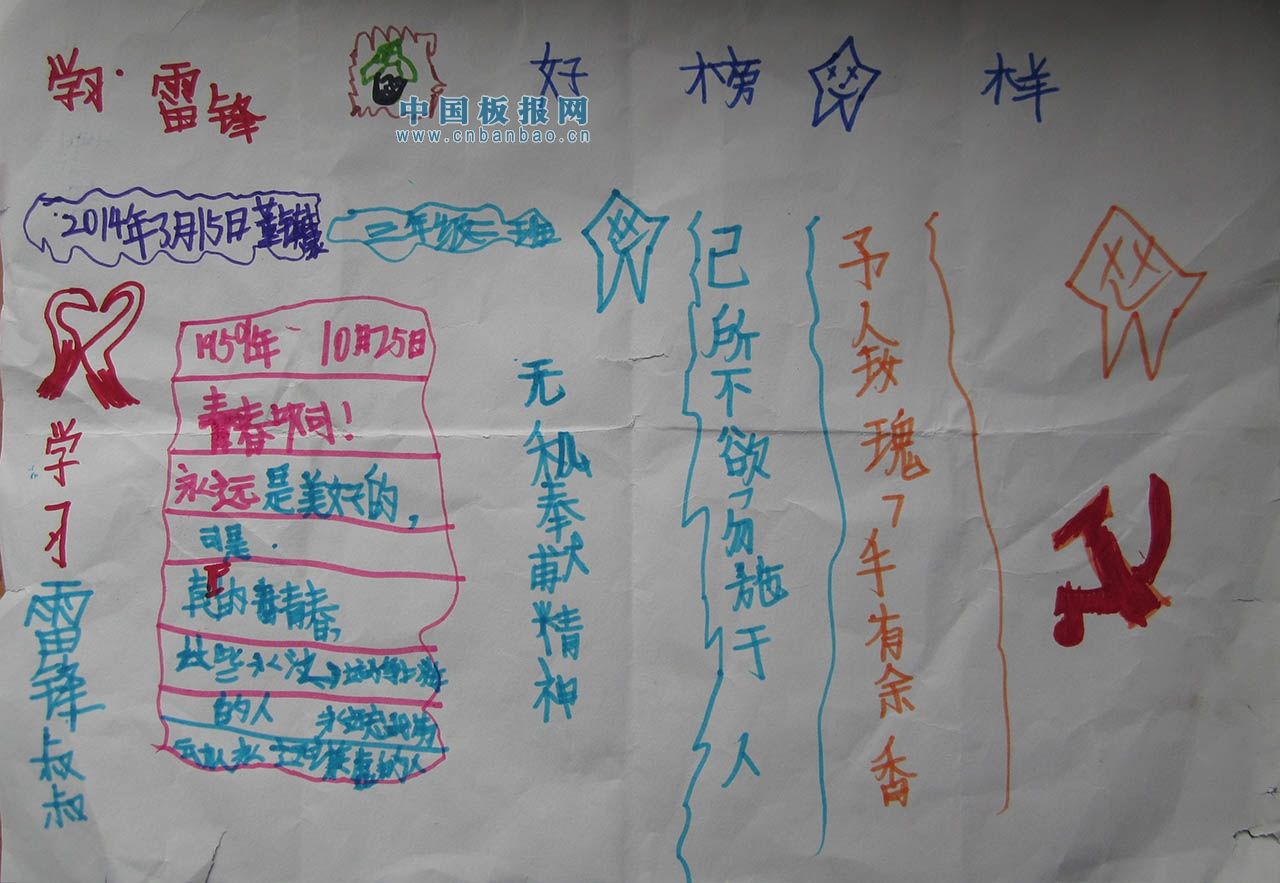 学习 雷锋 好 榜 样
中国板报网
www.cnbanbao.cn
2014年3月15日
三年级二班
学习雷锋叔叔
1959年 10月25日
青春啊!
永远是美好的,
可是.
真的青春,
这些永
的人
的人
无私奉献精神
己所不欲勿施于人
予人玫瑰了手有余香